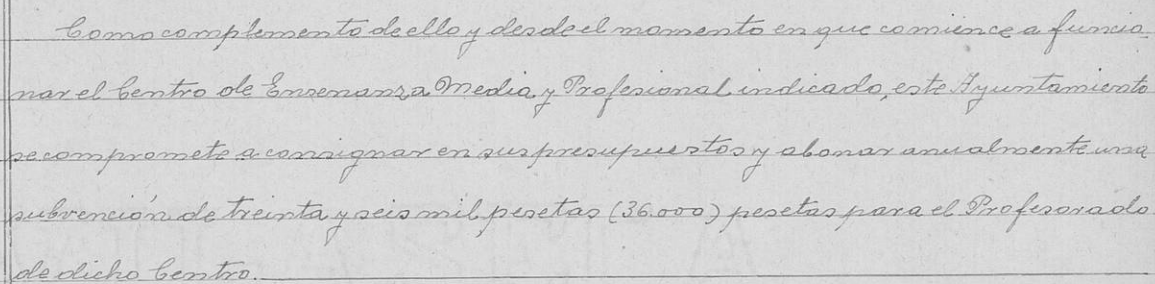 Como complemento de ello y desde el momento en que comience a funcio-
nar el Centro de Ensenanza Media y Profesional indicado, este Ayuntamiento
se compromete a consignar en sus presupuestos y abonar anualmente una
subvención de treinta y seis mil pesetas (36.000) pesetas para el Profesorado
de dicho Centro.